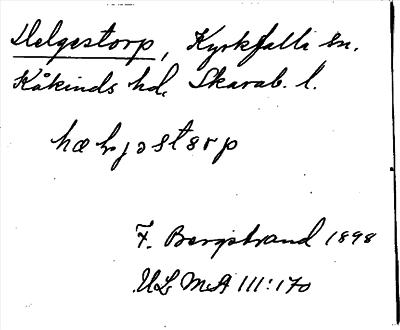 Helgestorp, Kyrkefalla sn.
Kåkinds hd. Skarab. l.
F. Bergstrand 1898
ULMA 111:170